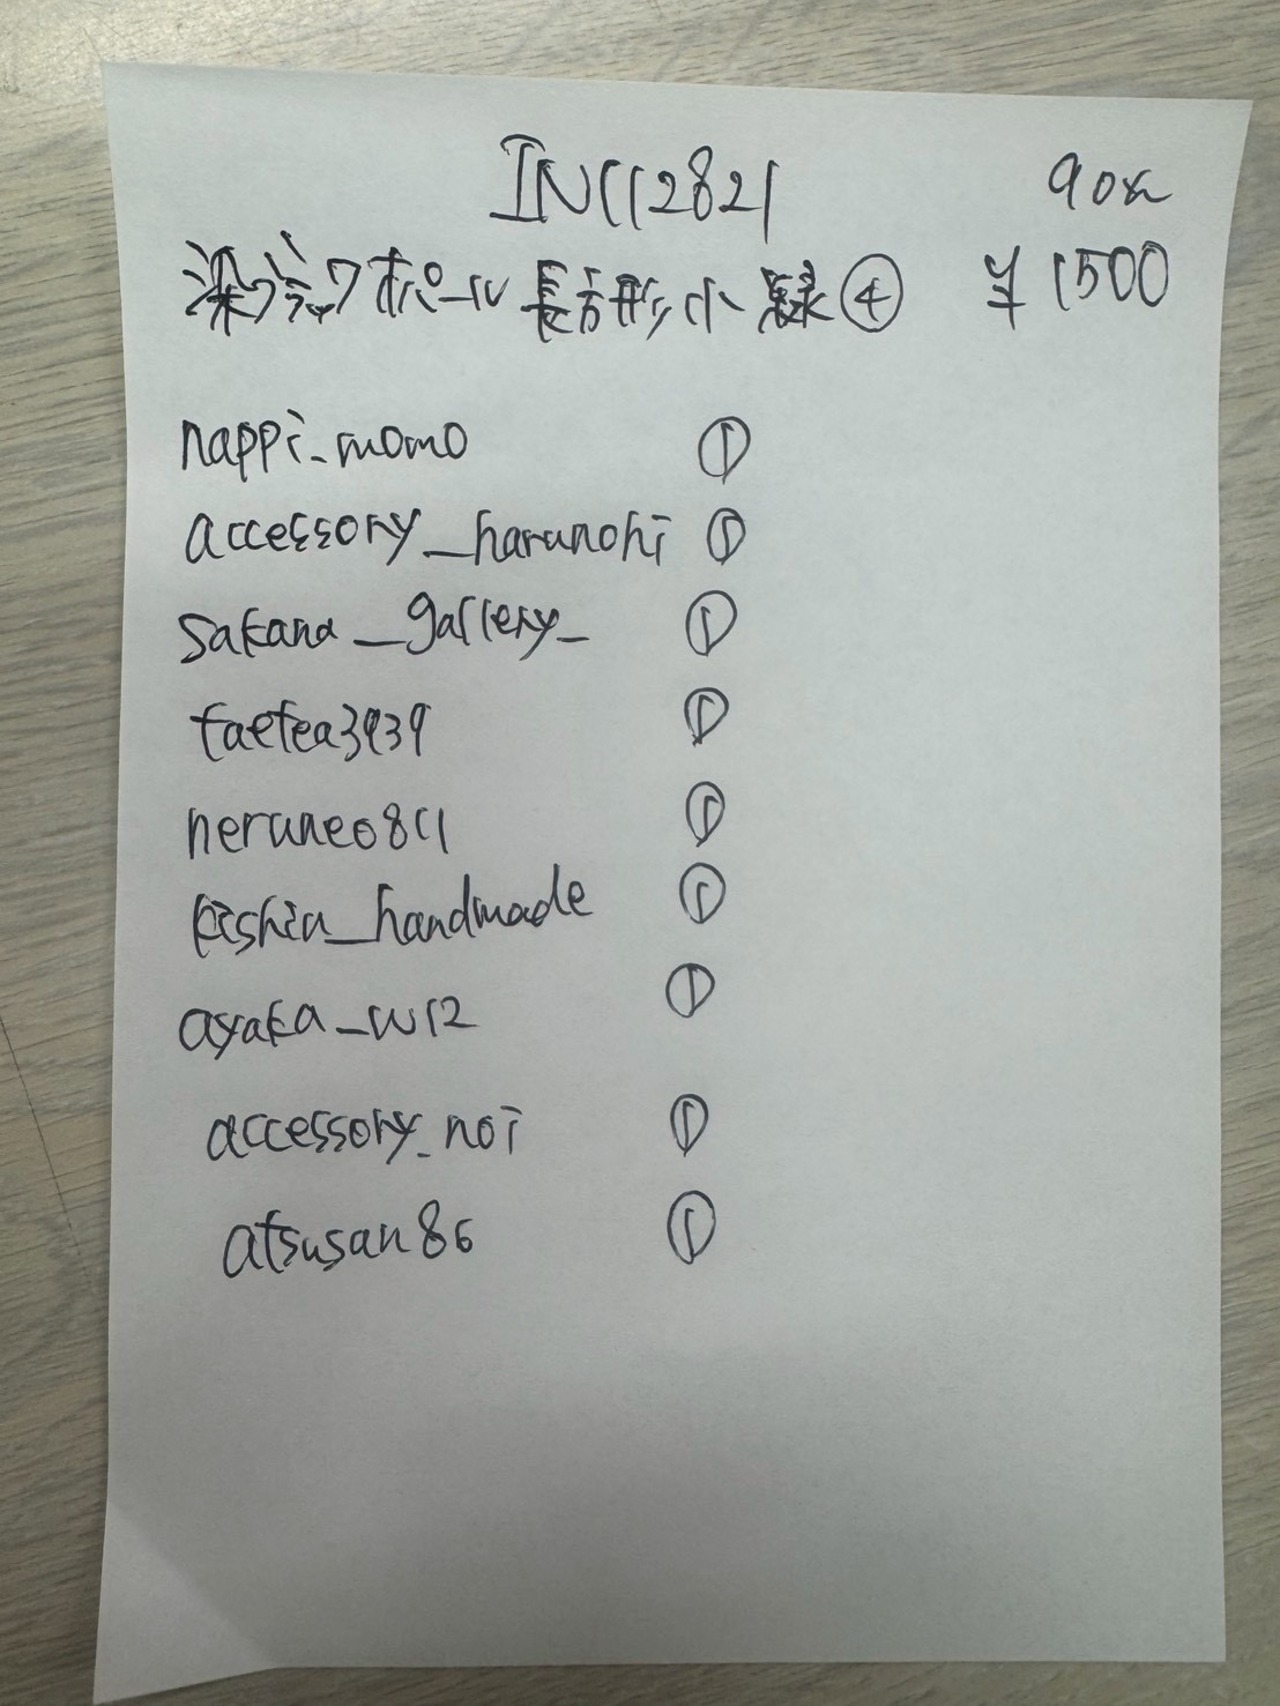 INC12821 90%
染淡クオパール長方形小 緑④ ¥1500
nappi_momo ①
accessory_harunohi ①
sakana_gallery_ ①
taetea3939 ①
neruneo811 ①
kishin_handmade ①
ayaka_w12 ①
accessory_noi ①
atsusan86 ①